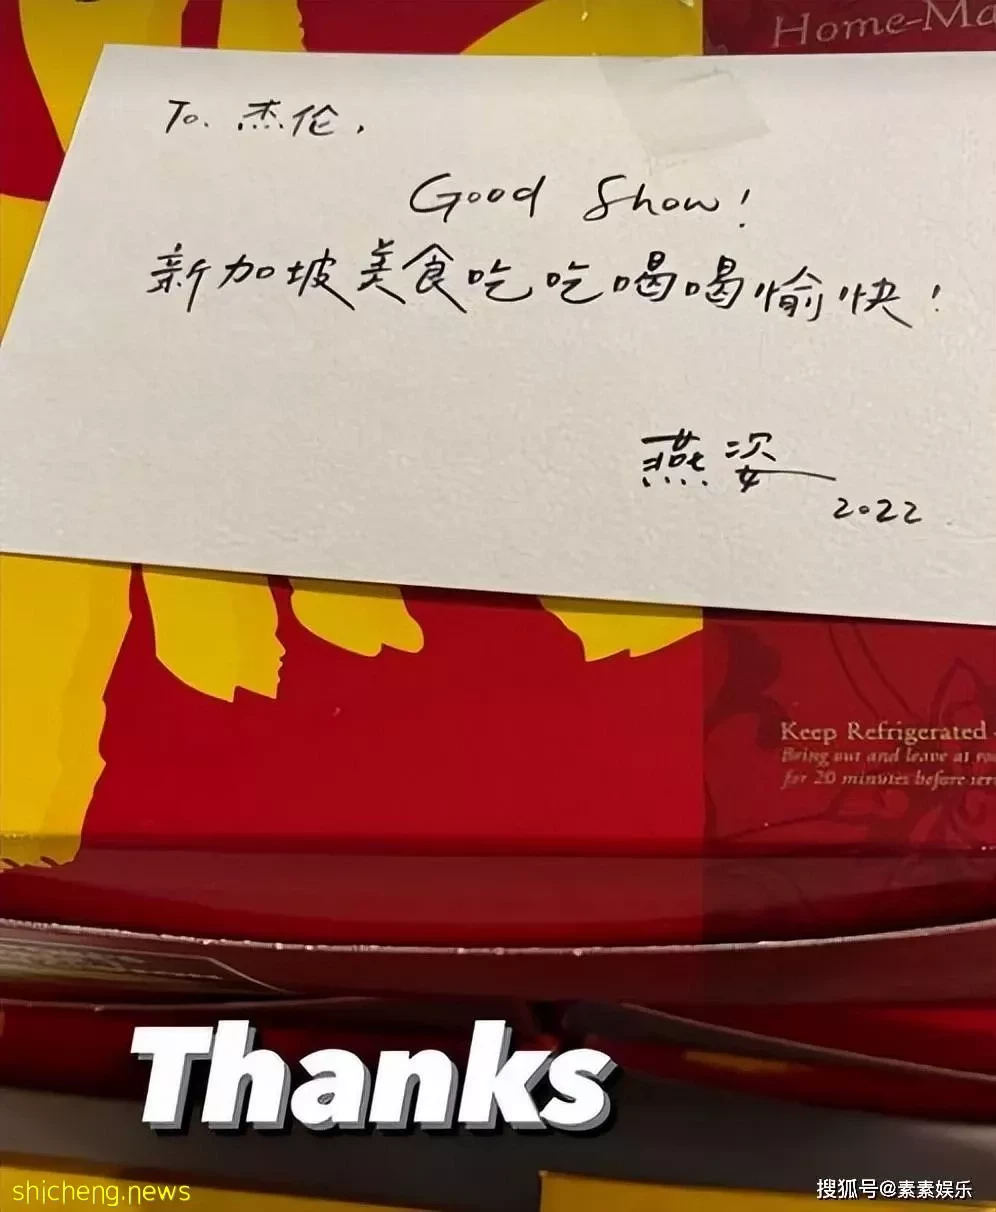 Home-Ma
To. 杰伦,
Good Show!
新加坡美食吃吃喝喝愉快!
燕姿
2022
Keep Refrigerated
Bring out and leave at
for 20 minutes before
Thanks
shicheng.news
搜狐号@素素娱乐